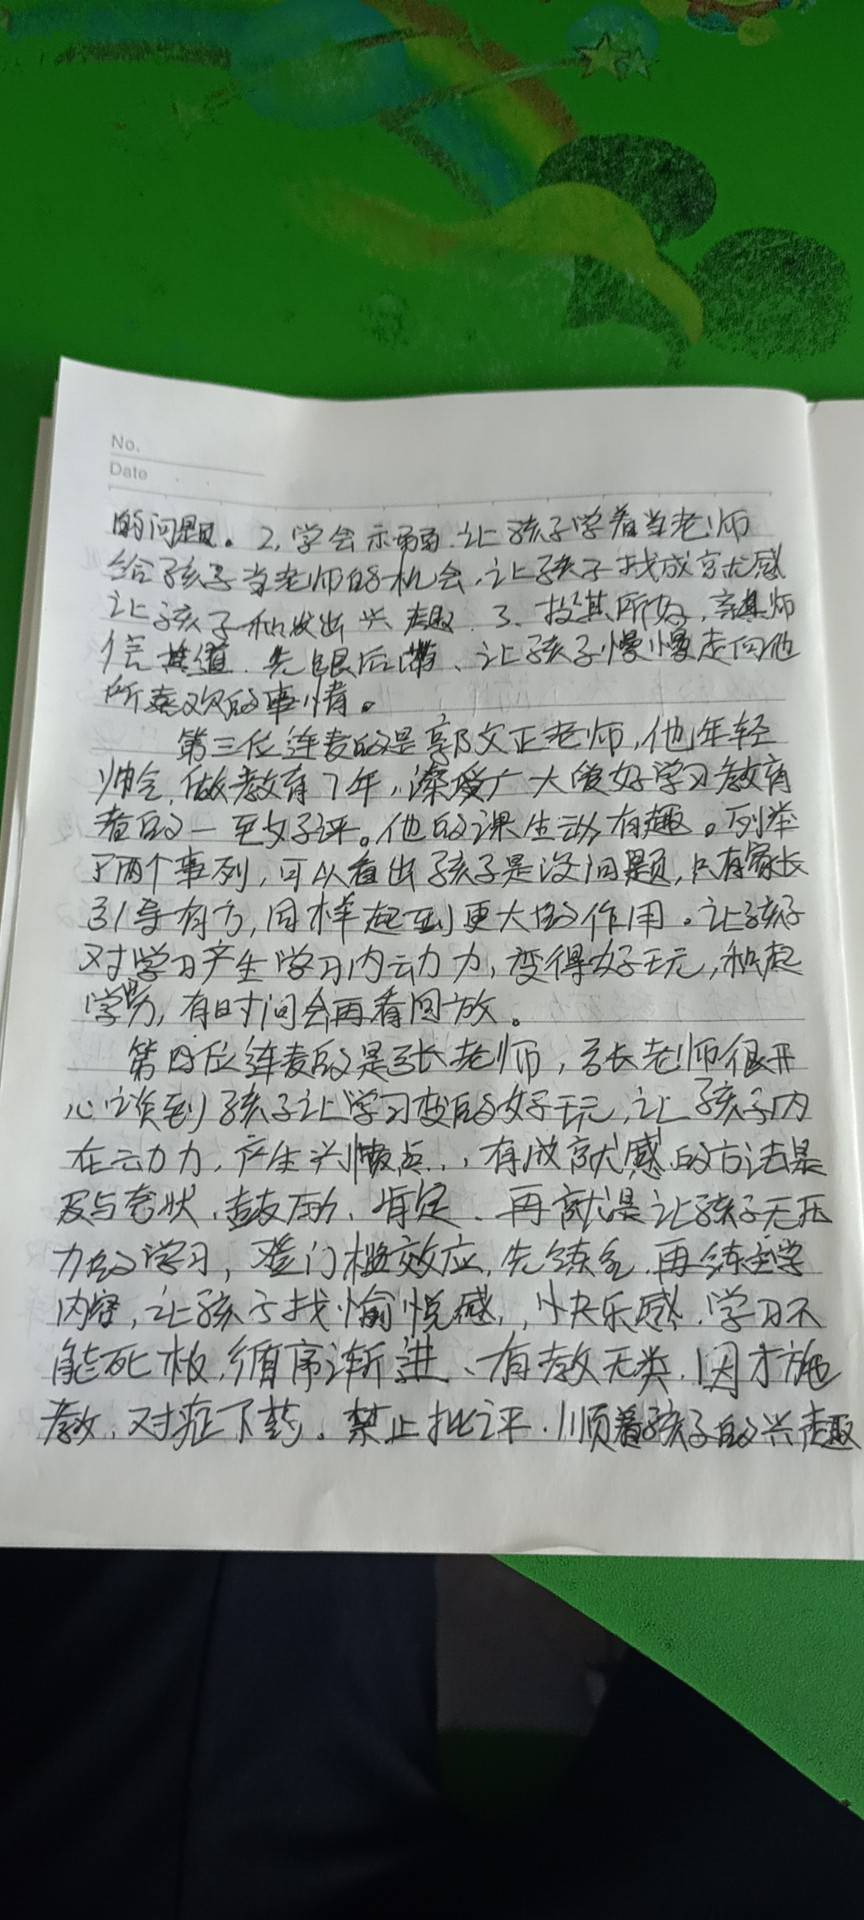 No.
Date
的问题。2,学会示弱.让孩子学着当老师
给孩子当老师的机会,让孩子找成就感
让孩子积发出兴趣.3、投其所好,亲其师
信其道.先跟后带、让孩子慢慢走向他
所喜欢的事情。
第三位连麦的是郭文正老师,他年轻
帅气,做教育7年,深受广大爱好学习教育
者的一至好评。他的课生动有趣。列举
了两个事列,可以看出孩子是没问题,只有家长
引导有方,同样起到更大的作用。让孩子
对学习产生学习内动力,变得好玩,积起
学习,有时间会再看回放。
第四位连麦的是张老师,张老师很开
心谈到孩子让学习变的好玩,让孩子内
在动力,产生兴趣点,,有成就感的方法是
及与夸状、鼓励、肯定、再就是让孩子无压
力的学习,登门槛效应,先练,再练学
内容,让孩子找愉悦感,,快乐感.学习不
能死板,循序渐进、有教无类.因才施
教、对症下药。禁止批评.顺着孩子的兴趣